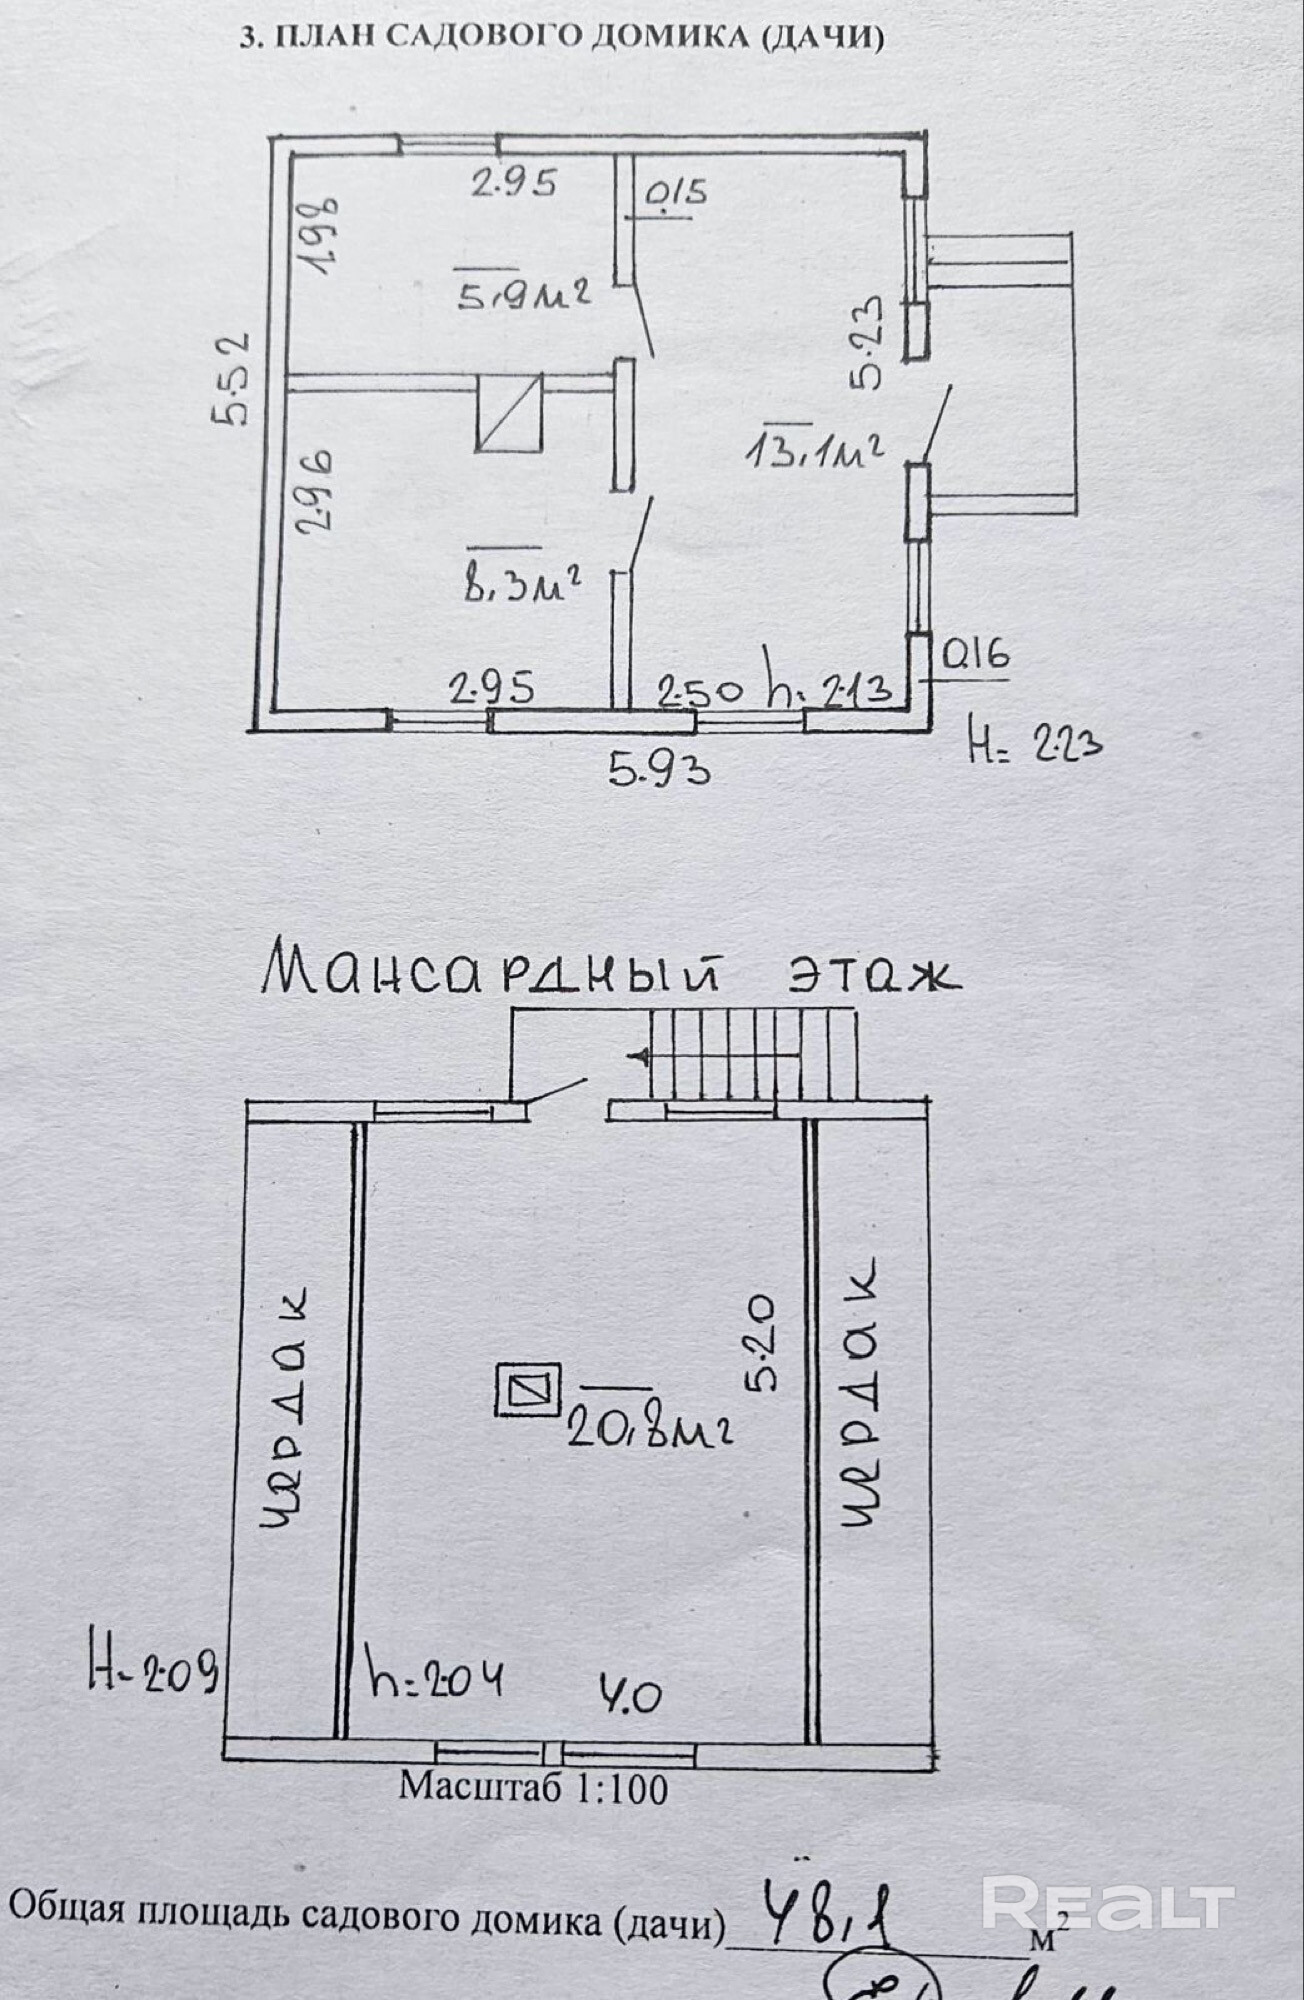 3. ПЛАН САДОВОГО ДОМИКА (ДАЧИ)
2.95
0.15
1.98
5,9м²
5.52
5.23
13,1м²
2.96
8,3м²
0.16
2.95
2.50 h= 2.13
H= 2.23
5.93
Мансардный этаж
чердак
5.20
чердак
20,8м²
H=2.09
h=2.04
4.0
Масштаб 1:100
Общая площадь садового домика (дачи) 48,1 м²
REALT